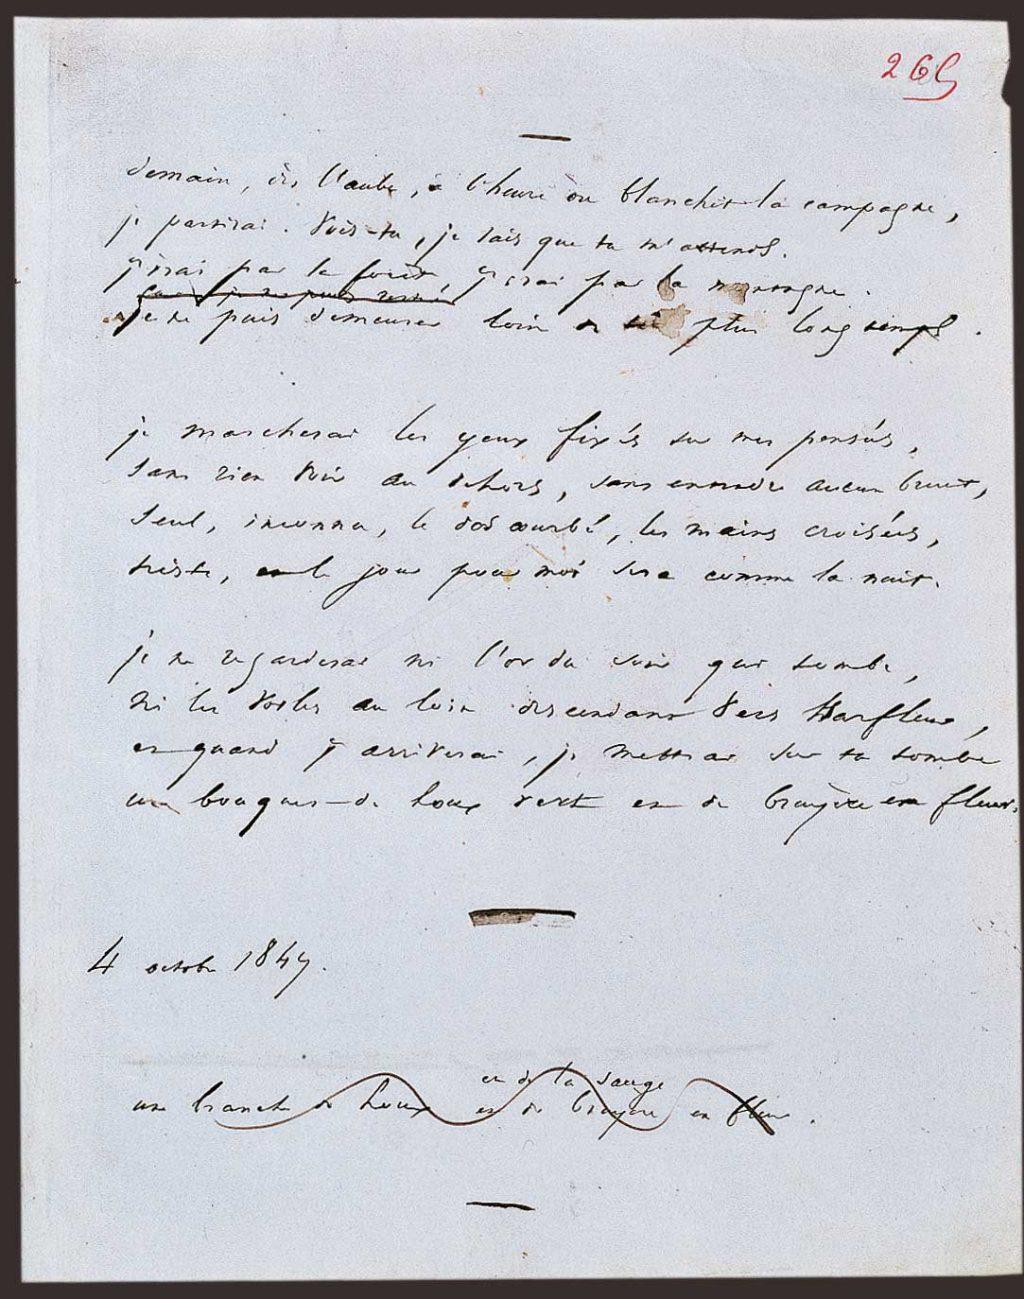 265
demain, dès l'aube, à l'heure où blanchit la campagne,
je partirai. Vois-tu, je sais que tu m'attends.
j'irai par la forêt, j'irai par la montagne.
je ne puis
je ne puis demeurer loin de toi plus longtemps.
je marcherai les yeux fixés sur mes pensées,
sans rien voir au dehors, sans entendre aucun bruit,
seul, inconnu, le dos courbé, les mains croisées,
triste, et le jour pour moi sera comme la nuit.
je ne regarderai ni l'or du soir qui tombe,
ni les voiles au loin descendant vers Harfleur,
et quand j'arriverai, je mettrai sur ta tombe
un bouquet de houx vert et de bruyère en fleur.
4 octobre 1847.
et de la sauge
une branche de houx et de bruyère en fleur.